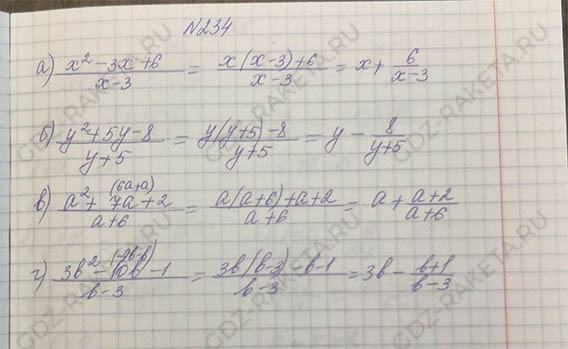 №234
а) (x² - 3x + 6)/(x - 3) = (x(x - 3) + 6)/(x - 3) = x + 6/(x - 3)
б) (y² + 5y - 8)/(y + 5) = (y(y + 5) - 8)/(y + 5) = y - 8/(y + 5)
(6a+a)
в) (a² + 7a + 2)/(a + 6) = (a(a + 6) + a + 2)/(a + 6) = a + (a + 2)/(a + 6)
(-9b-b)
г) (3b² - 10b - 1)/(b - 3) = (3b(b - 3) - b - 1)/(b - 3) = 3b - (b + 1)/(b - 3)
GDZ-RAKETA.RU